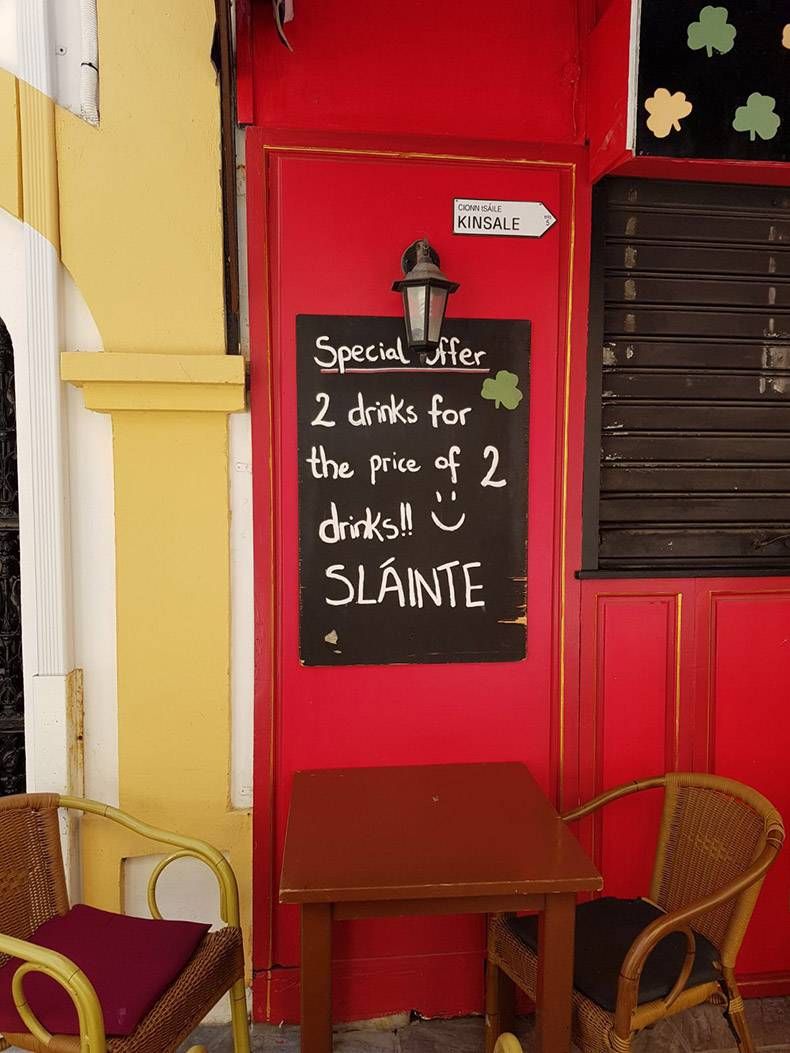 CIONN tSÁILE
KINSALE
Special Offer
2 drinks for
the price of 2
drinks!! :)
SLÁINTE